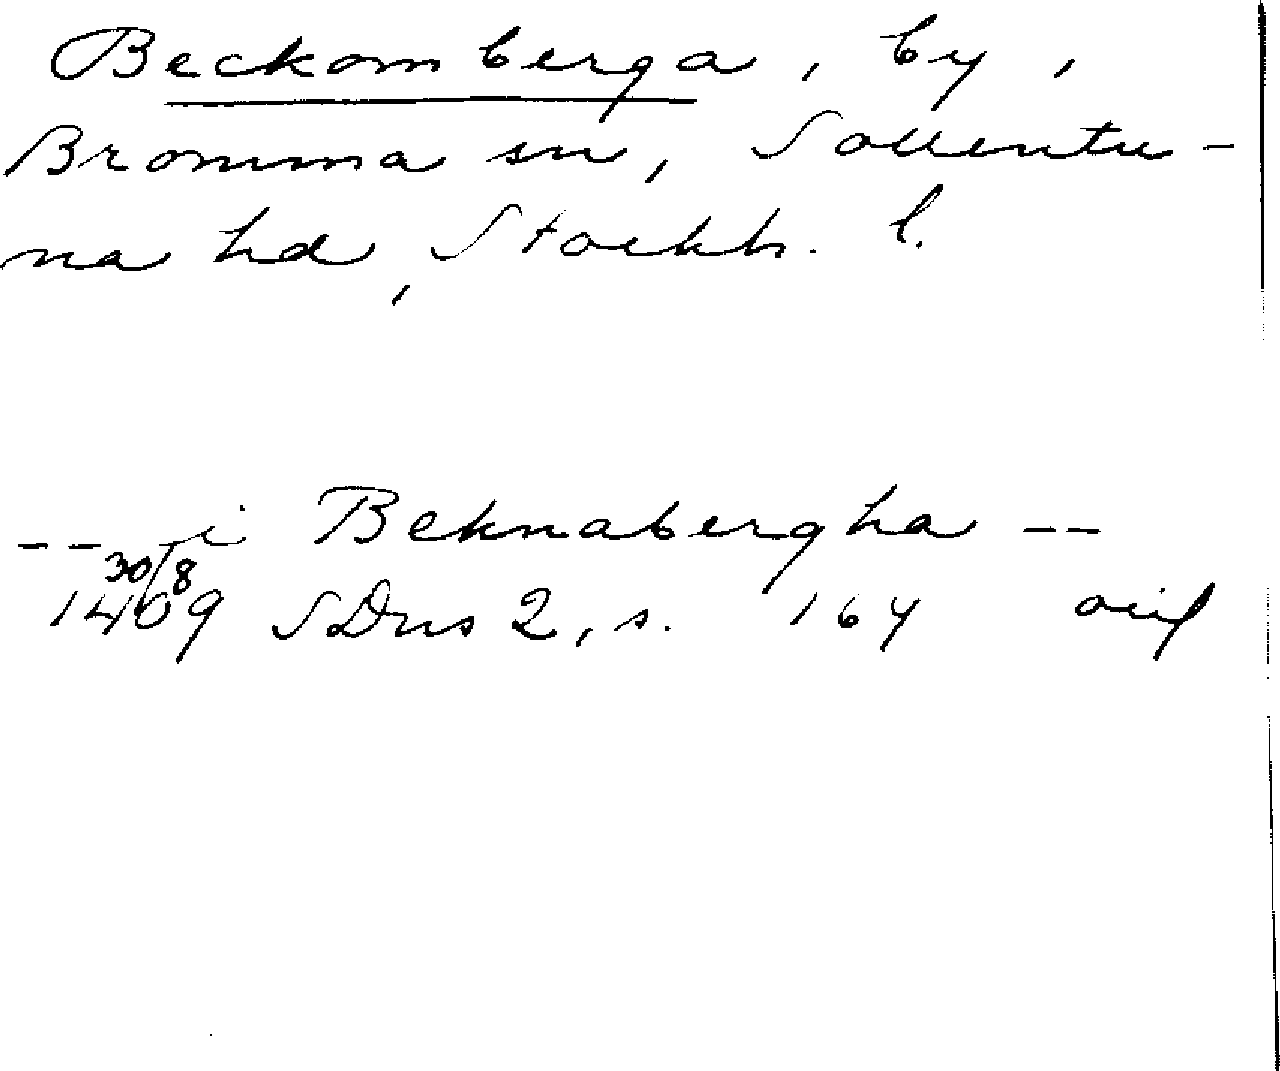 Beckomberga, by,
Bromma sn, Sollentu-
na hd, Stockh. l.
-- i Beknabergha --
30/8
1409 SDns 2, s. 164 avid